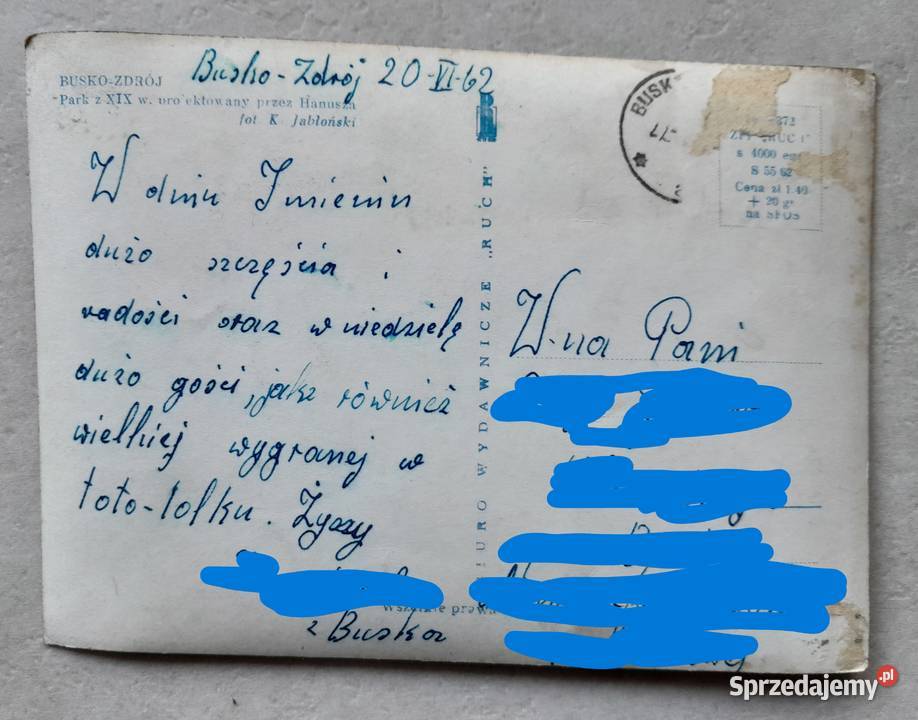 BUSKO-ZDRÓJ
Park z XIX w. projektowany przez Hanusza
fot K Jabłoński
Busko-Zdrój 20-VI-62
W dniu Imienin
dużo szczęścia i
radości oraz w niedzielę
dużo gości, jakz również
wielkiej wygranej w
toto-lolku. Życzy
z Buska
BIURO WYDAWNICZE „RUCH"
Wszelkie prawa
BUSK
s 4000 egz
S 55 62
Cena zł 1.40
+ 20 gr
na SFOS
W-na Pani
Sprzedajemy.pl